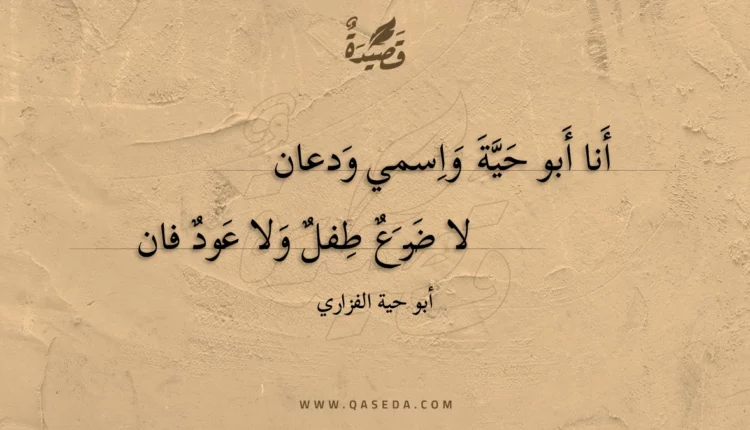 قَصِيْدَةٌ
أَنا أَبو حَيَّةَ وَاِسمي وَدعان
لا ضَرَعٌ طِفلٌ وَلا عَودٌ فان
أبو حية الفزاري
WWW.QASEDA.COM